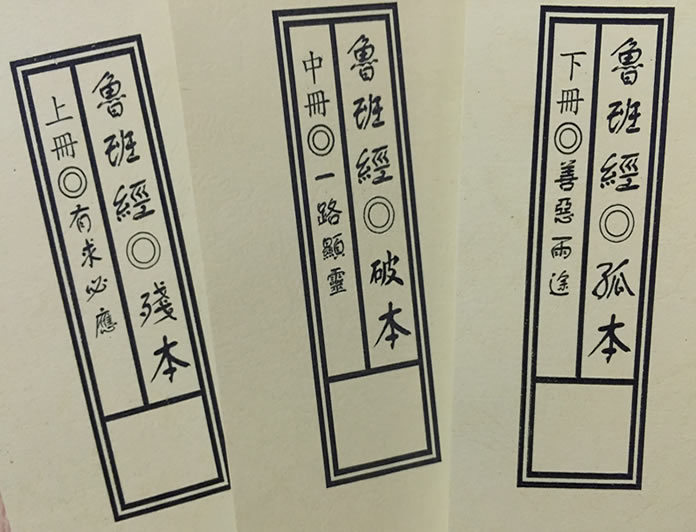 魯班經◎殘本
上冊◎有求必應
魯班經◎破本
中冊◎一路顯靈
魯班經◎孤本
下冊◎善惡雨途